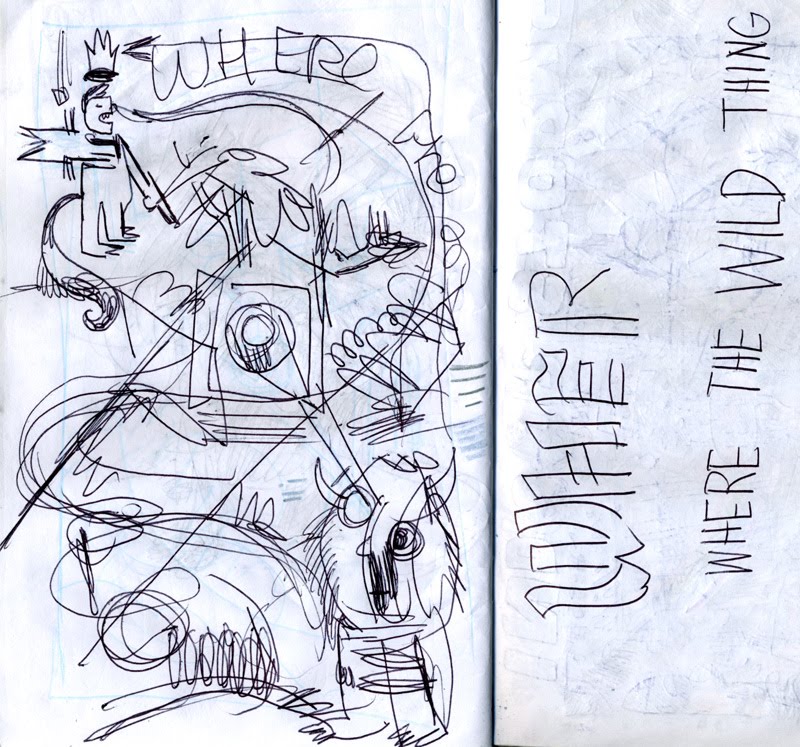 WHERE
WHER
WHERE THE WILD THING